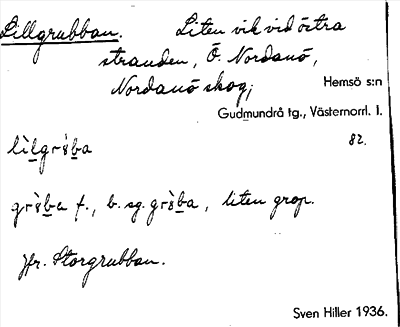 Lillgrubban. Liten vik vid östra
stranden, Ö. Nordanö,
Nordanö skog,
Hemsö s:n
Gudmundrå tg., Västernorrl. l.
82.
lìlgrꞷ̀ba
grꞷ̀ba f., b. sg. grꞷ̀ba, liten grop.
jfr. Storgrubban.
Sven Hiller 1936.